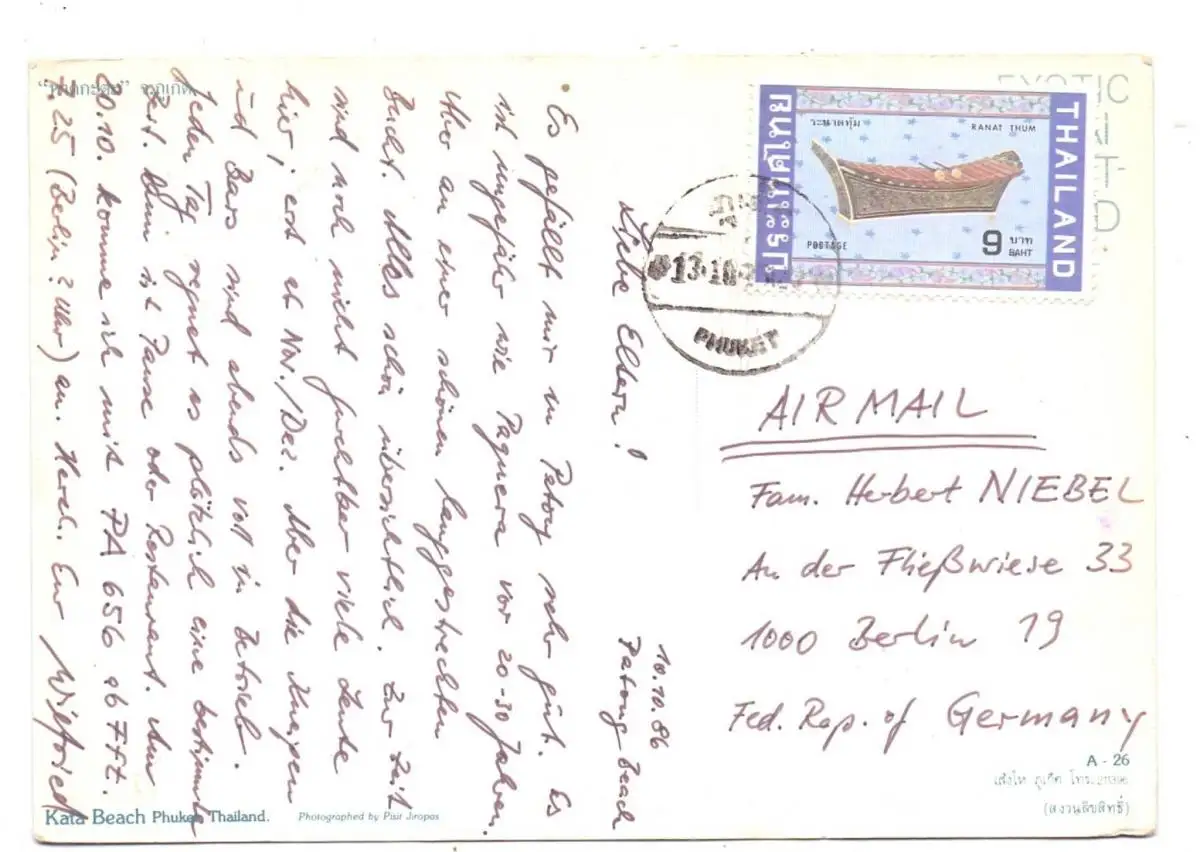 "หาดกะตะ" จ.ภูเก็ต
10.10.86
Patong Beach
Liebe Eltern!
Es gefällt mir in Patong sehr gut. Es
ist ungefähr wie Paguera vor 20-30 Jahren.
Aber an einer schönen langgestreckten
Bucht. Alles schön übersichtlich. Zur Zeit
sind noch nicht furchtbar viele Leute
hier, erst ab Nov./Dez. Aber die Kneipen
und Bars sind abends voll in Betrieb.
Jeden Tag regnet es plötzlich eine bestimmte
Zeit. Dann ist Pause oder Restaurant. Am
20.10. komme ich mit PA 656 ab Fft.
7.25 (Berlin ? Uhr) an. Herzl. Euer Wilfried
Kata Beach Phuket, Thailand.
Photographed by Pisit Jiropas
EXOTIC
ประเทศไทย
THAILAND
ระนาดทุ้ม
RANAT THUM
POSTAGE
9 บาท
BAHT
13.10
PHUKET
AIR MAIL
Fam. Herbert NIEBEL
An der Fließwiese 33
1000 Berlin 19
Fed. Rep. of Germany
A - 26
เส้งโห ภูเก็ต โทร.
(สงวนลิขสิทธิ์)